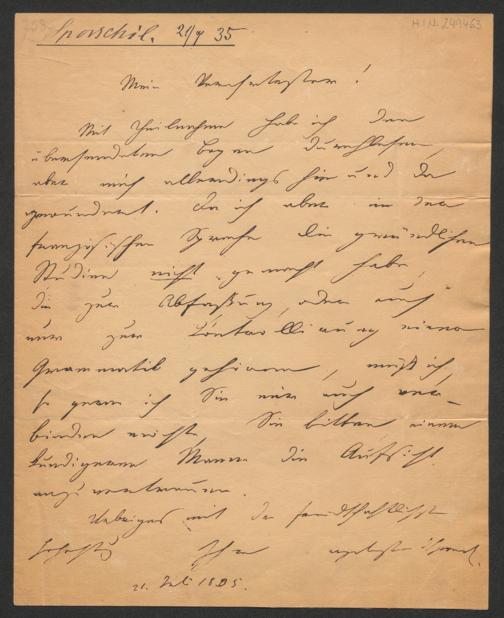 Sporschil. 21/7 35
H.I.N. 241463
Mein Verehrtester!
Mit Theilnahme habe ich den
übersendeten Bogen durchlesen,
aber mich allerdings hier und da
gewundert. Da ich aber in der
französischen Sprache die gründlichen
Studien nicht gemacht habe,
die zur Abfassung, oder auch
nur zur Controllirung einer
Grammatik gehören, muß ich,
so gern ich Sie mir auch ver-
binden möchte, Sie bitten einem
kundigeren Manne die Aufsicht
anzuvertrauen.
Uebrigens mit der freundschaftlichsten
Ihr
21. Juli 1835.